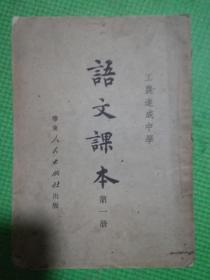 工農速成中學
語文課本
第一册
華東人民出版社出版